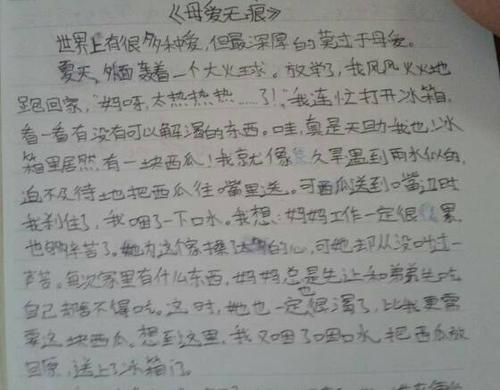 《母爱无痕》
世界上有很多种爱,但最深厚的莫过于母爱。
夏天,外面轰着一个大火球。放学了,我风风火火地
跑回家,“妈呀,太热热热……了!”我连忙打开冰箱,
看一看有没有可以解渴的东西。哇,真是天助我也!冰
箱里居然有一块西瓜!我就像久旱遇到雨水似的,
迫不及待地把西瓜往嘴里送。可西瓜送到嘴边时
我刹住了,我咽了一下口水。我想:妈妈工作一定很累,
也够辛苦了。她为这个家操了的心,可她却从没叫过一
声苦。每次家里有什么东西,妈妈总是先让和弟弟先吃
自己却舍不得吃。这时,她也一定很渴了,比我更需
要这块西瓜。想到这里,我又咽了咽口水,把西瓜放
回原,送上了冰箱门。